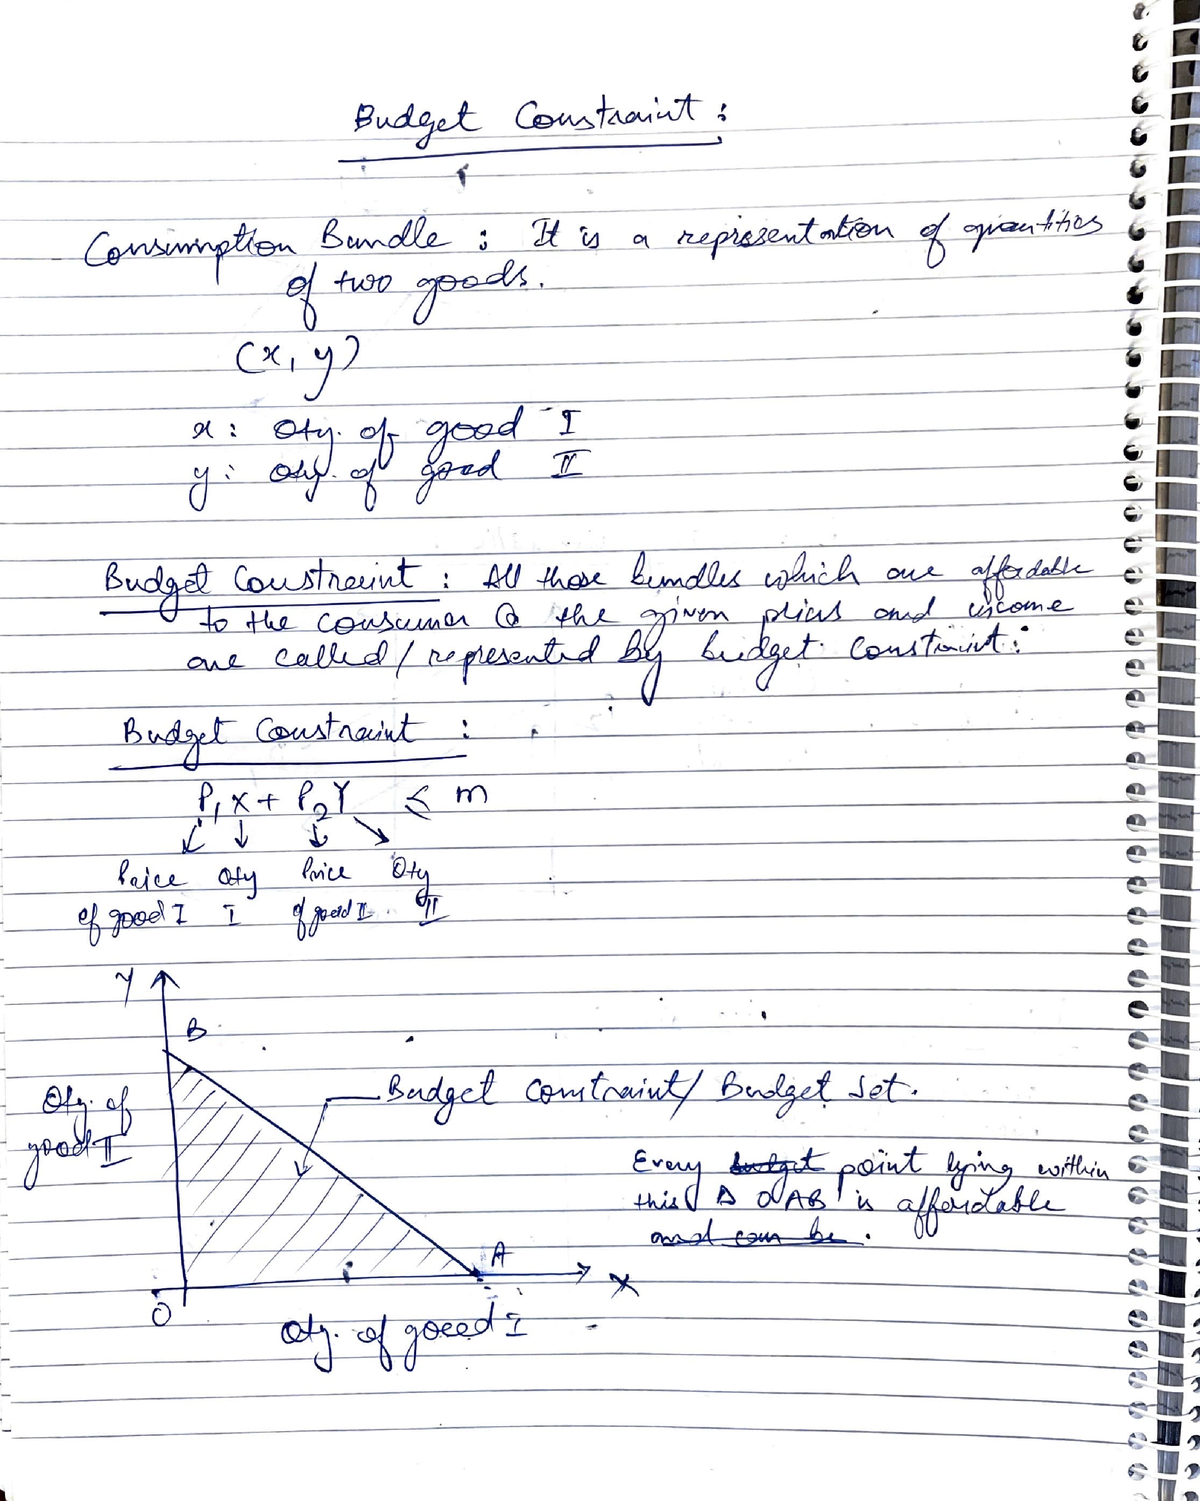 Budget Constraint :
Consumption Bundle : It is a representation of quantities
of two goods.
(x, y)
x : Qty. of good I
y : Qty. of good II
Budget Constraint : All those bundles which are affordable
to the consumer @ the given prices and income
are called / represented by budget constraint :
Budget Constraint :
P₁X + P₂Y ≤ m
Price Qty Price Qty
of good I I of good II II
Y
B
Qty. of
good II
Budget Constraint / Budget Set.
Every budget point lying within
this Δ OAB is affordable
and can be .
A
X
O
Qty. of good I